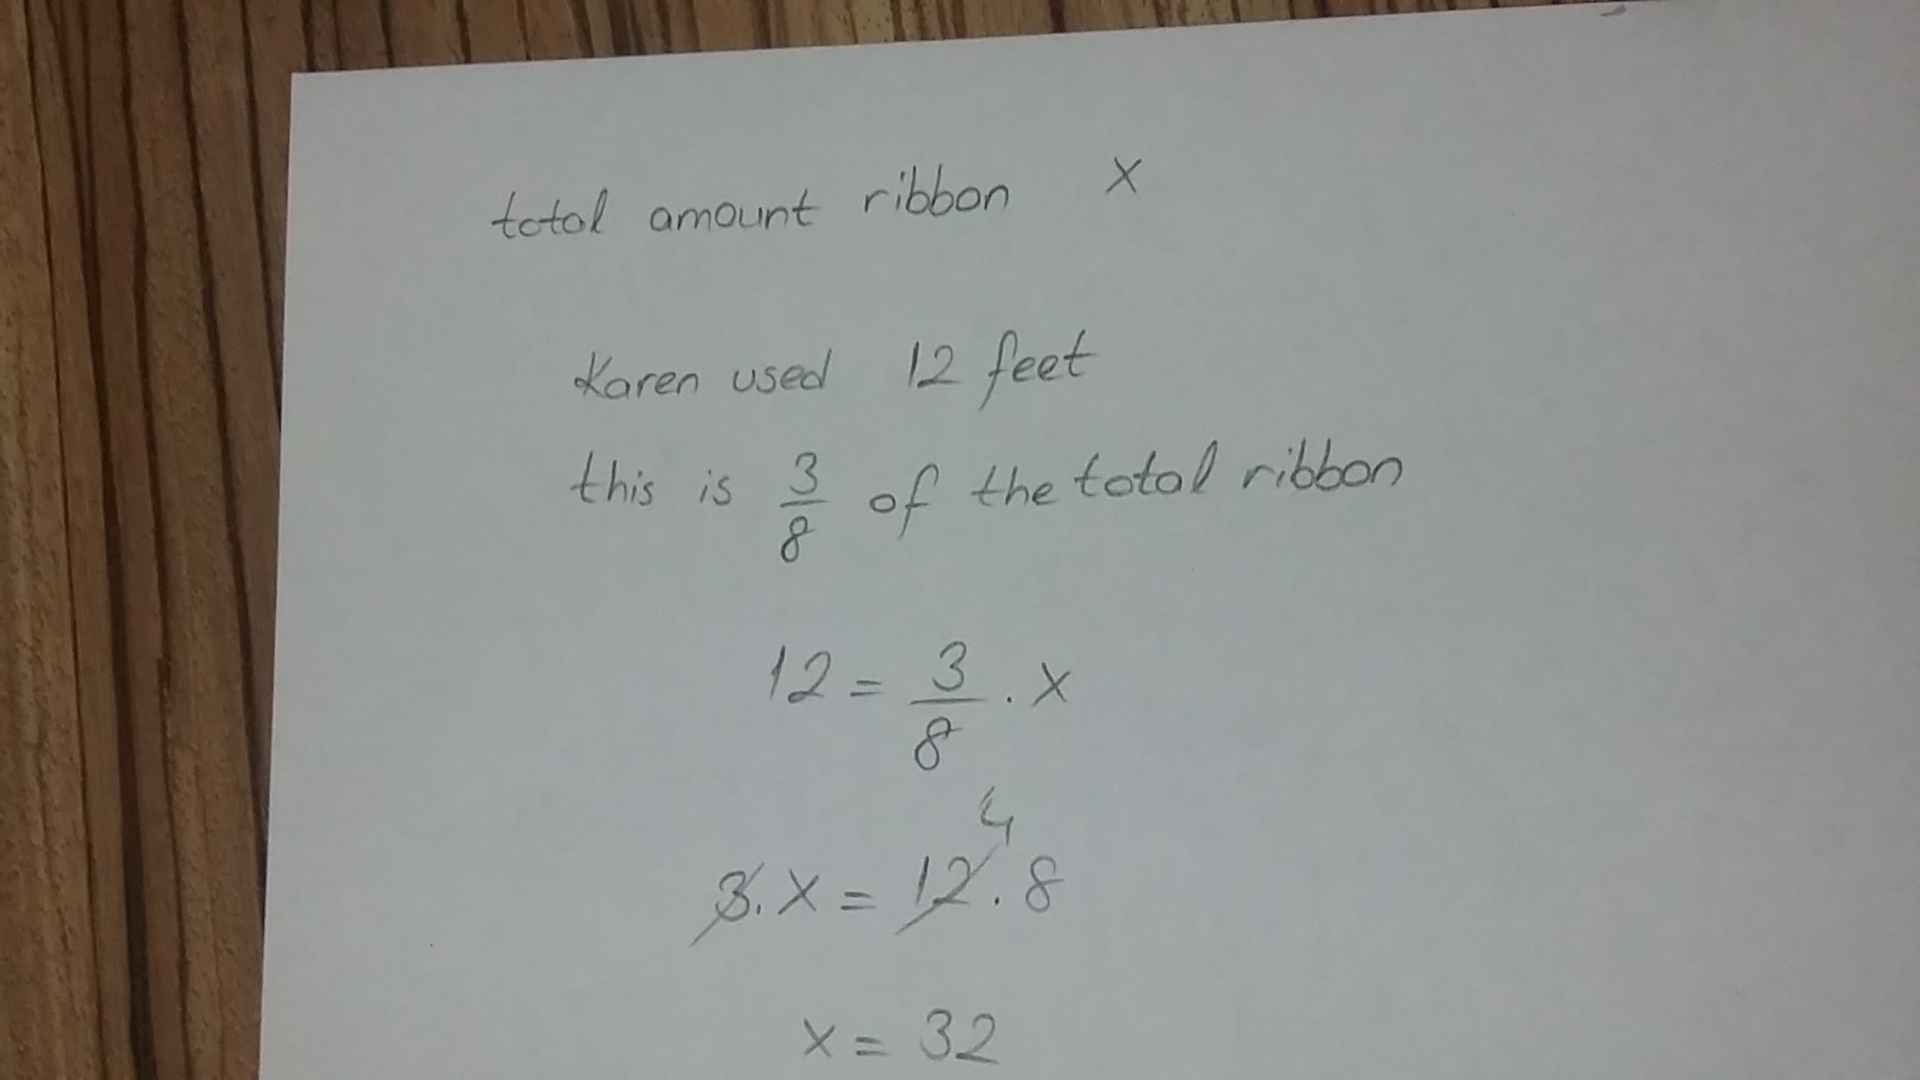 total amount ribbon x
Karen used 12 feet
this is 3/8 of the total ribbon
12 = 3/8 . x
4
3.x = 12.8
x = 32